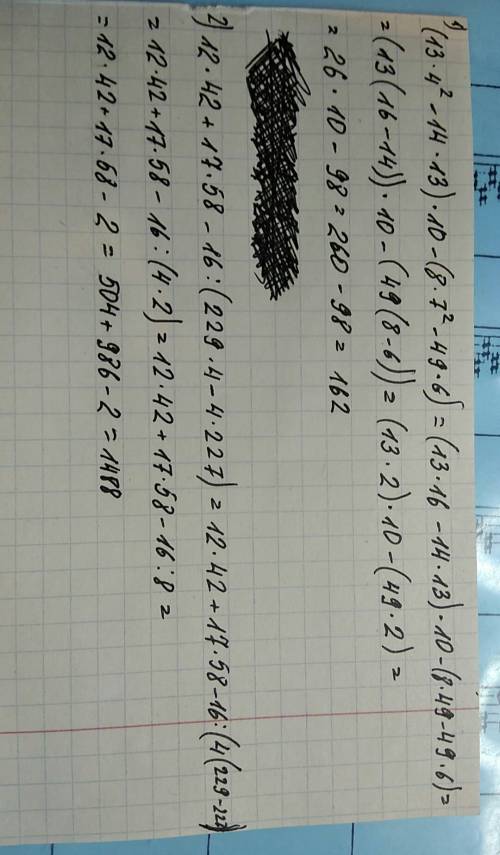 1) (13·4²-14·13)·10-(8·7²-49·6)=(13·16-14·13)·10-(8·49-49·6)=
=(13(16-14))·10-(49(8-6))=(13·2)·10-(49·2)=
=26·10-98=260-98=162
2) 12·42+17·58-16:(229·4-4·227)=12·42+17·58-16:(4(229-227))
=12·42+17·58-16:(4·2)=12·42+17·58-16:8=
=12·42+17·58-2=504+986-2=1488